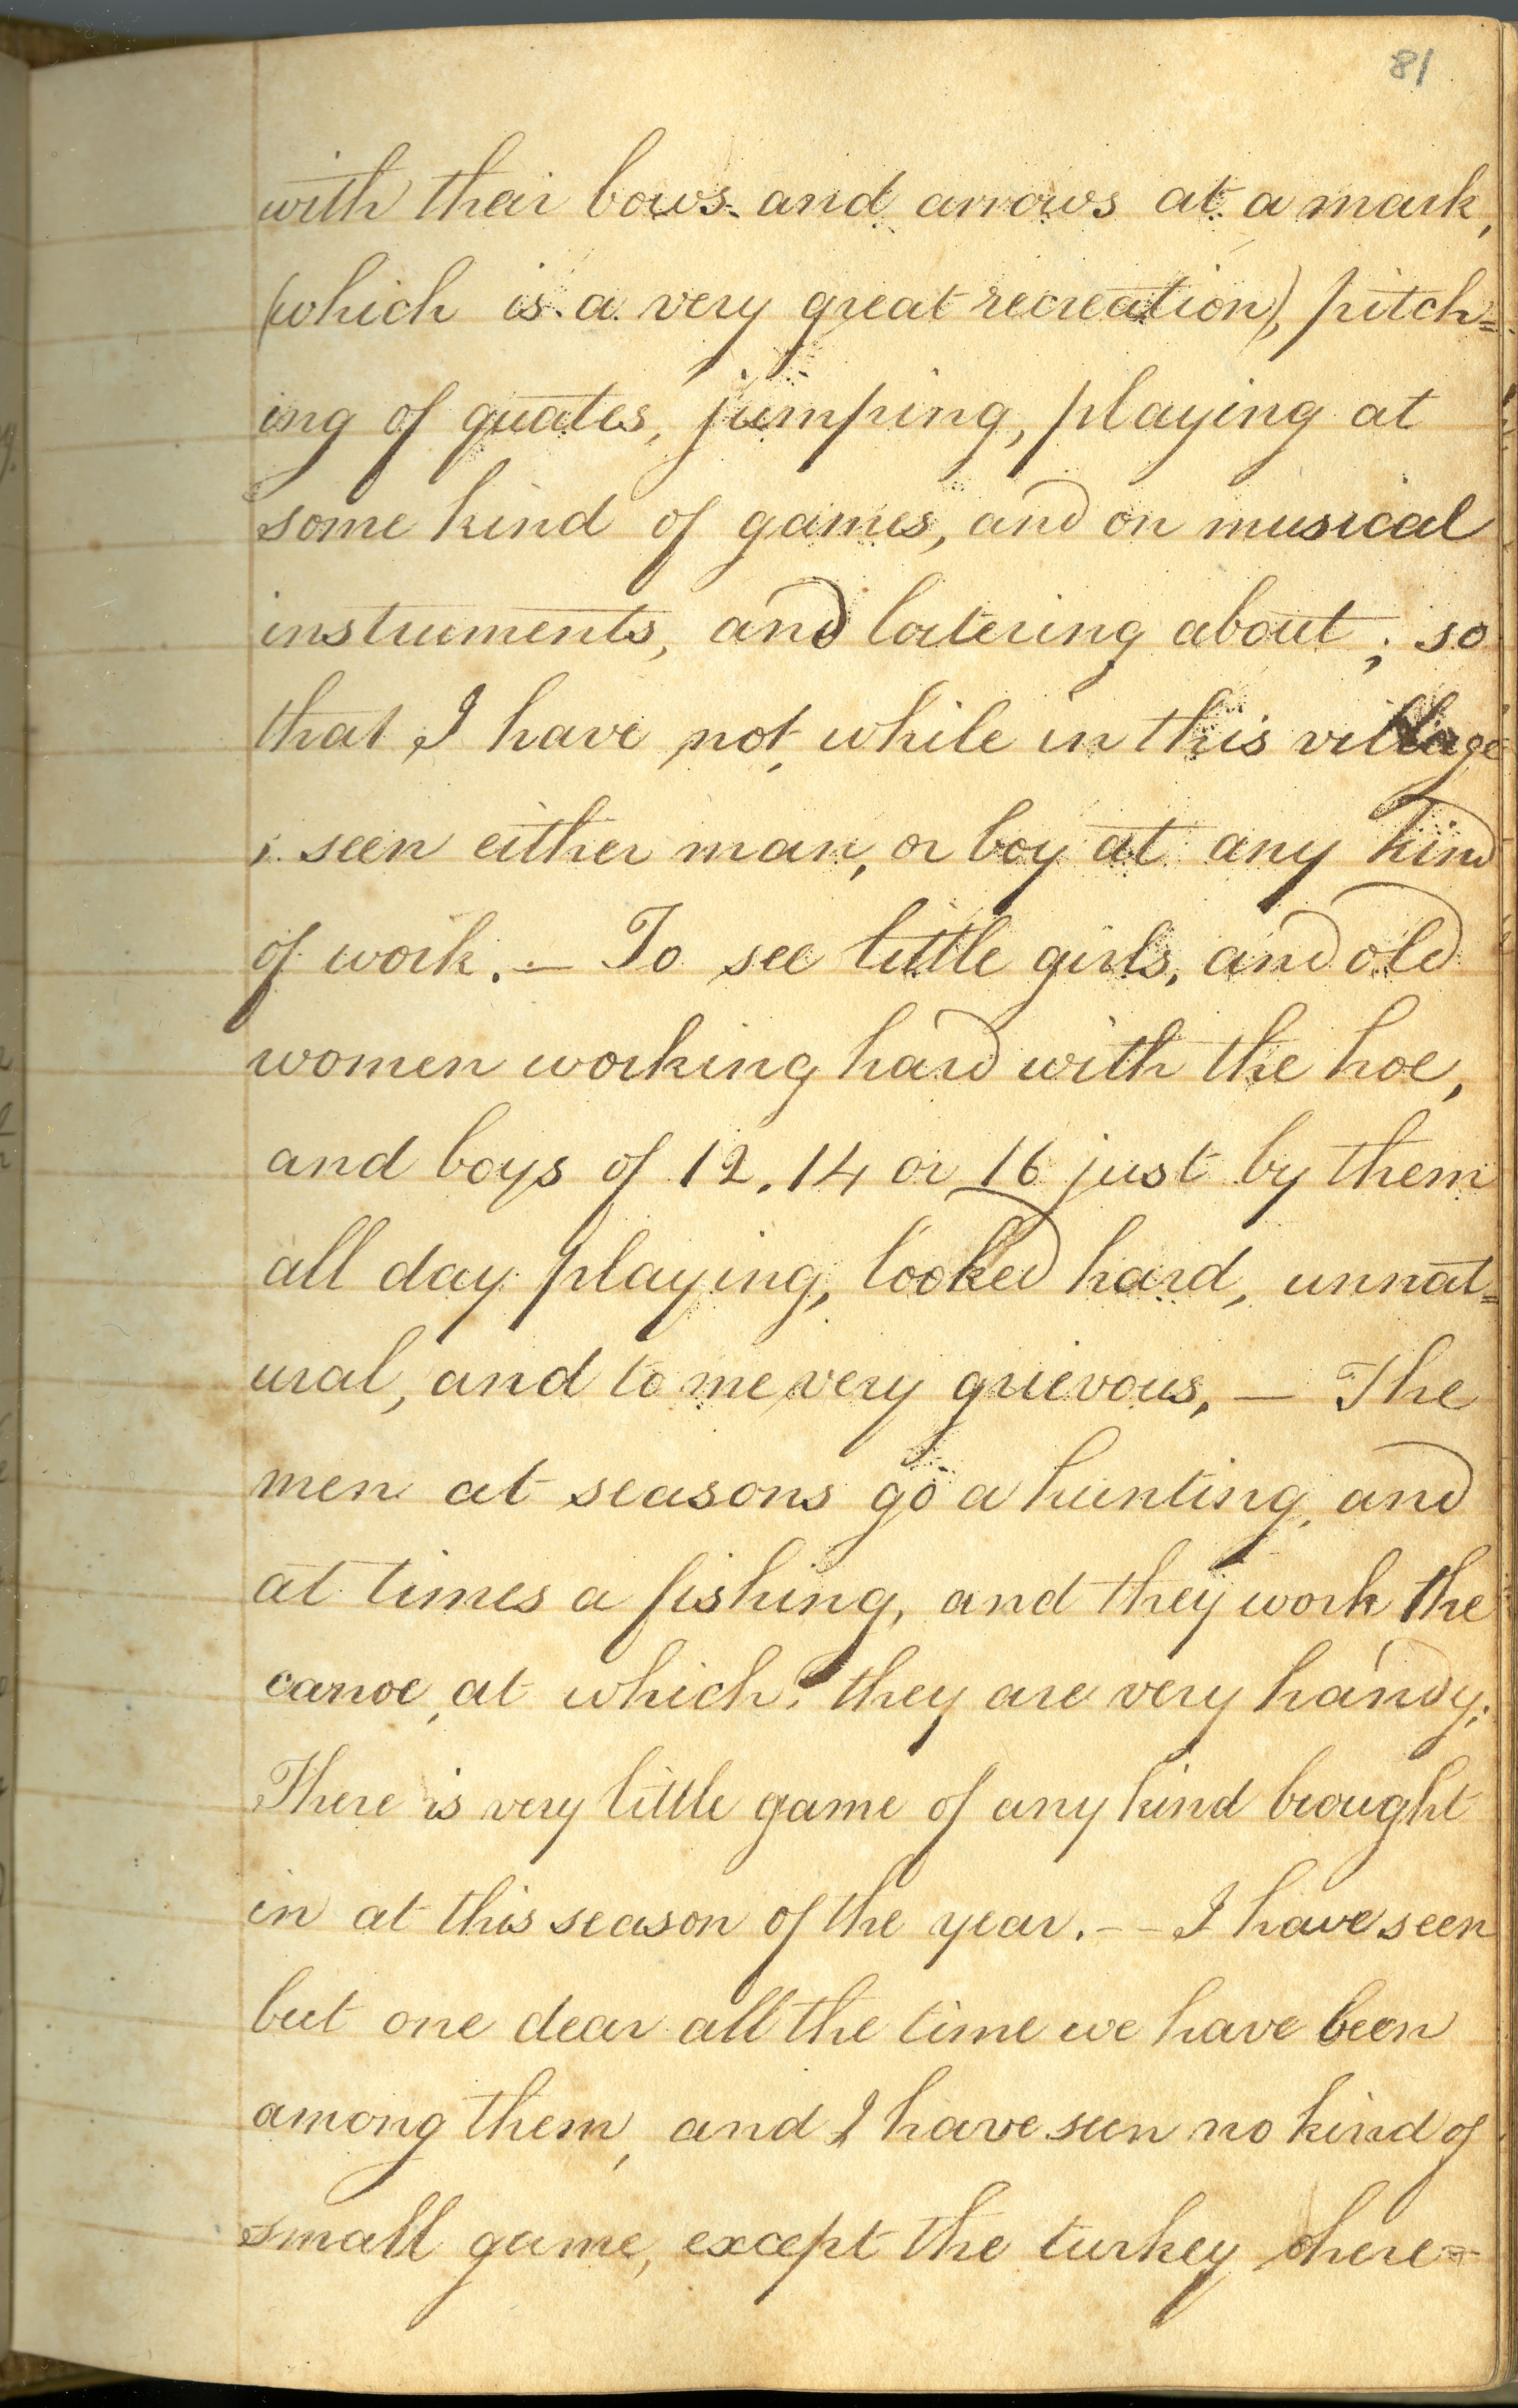 81
with their bows and arrows at a mark,
(which is a very great recreation), pitch=
ing of quates, jumping, playing at
some kind of games, and on musical
instruments, and loitering about; so
that I have not, while in this village
seen either man, or boy at any kind
of work. — To see little girls, and old
women working hard with the hoe,
and boys of 12, 14 or 16 just by them
all day playing, looked hard, unnat=
ural, and to me very grievous, — The
men at seasons go a hunting, and
at times a fishing, and they work the
canoe, at which they are very handy;
There is very little game of any kind brought
in at this season of the year. -- I have seen
but one dear all the time we have been
among them, and I have seen no kind of
small game, except the turkey here=